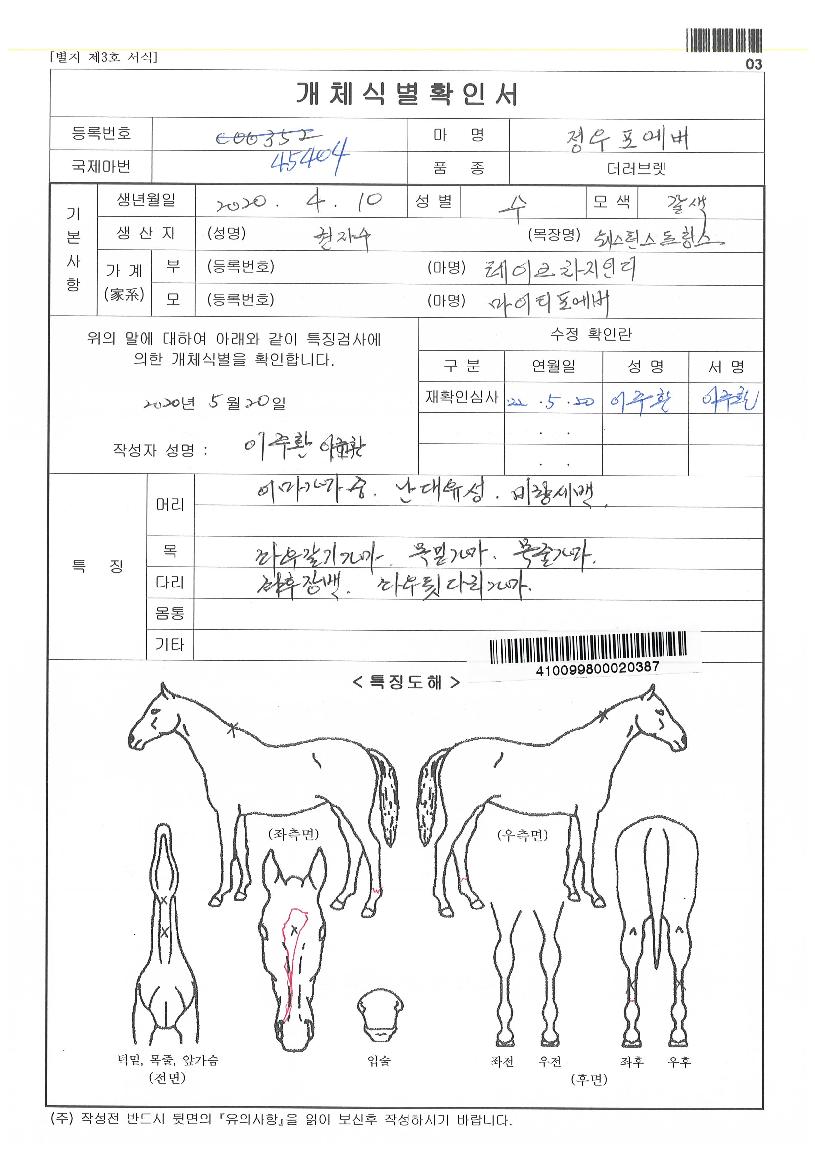 [별지 제3호 서식]
03
개체식별확인서
등록번호 006352 마 명 정우포에버
국제마번 45404 품 종 더러브렛
기본사항
생년월일 2020 . 4 . 10 성 별 수 모 색 갈색
생 산 지 (성명) (목장명)
가 계 (家系) 부 (등록번호) (마명) 테이크차지인디
모 (등록번호) (마명) 마이티포에버
위의 말에 대하여 아래와 같이 특징검사에
의한 개체식별을 확인합니다.
2020년 5월 20일
작성자 성명 : 이주환 이주환
수정 확인란
구 분 연월일 성 명 서 명
재확인심사 22 . 5 . 20 이주환 이주환
. .
. .
특 징
머리 이마가마중. 난대유성. 비량세백.
목 좌우갈기가마. 목밑가마. 목줄가마.
다리 좌후장백. 좌우뒷다리가마.
몸통
기타
410099800020387
< 특징도해 >
(좌측면) (우측면)
턱밑, 목줄, 앞가슴 입술 좌전 우전 좌후 우후
(전면) (후면)
(주) 작성전 반드시 뒷면의 『유의사항』을 읽어 보신후 작성하시기 바랍니다.